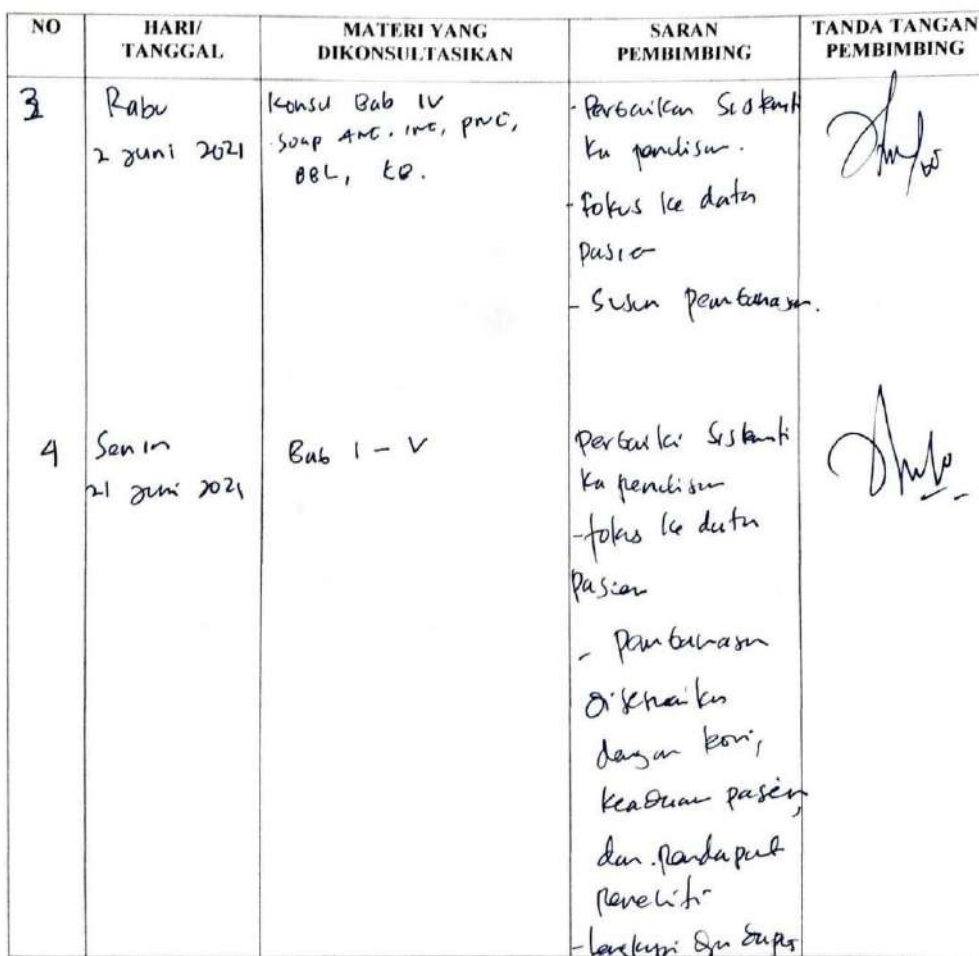 NO HARI/ TANGGAL MATERI YANG DIKONSULTASIKAN SARAN PEMBIMBING TANDA TANGAN PEMBIMBING
3 Rabu
2 Juni 2021
Konsul Bab IV
Soap ANC, INC, PNC,
BBL, KB.
- Perbaikan Sistemati
ka penulisan.
- fokus ke data
pasien
- Susun pembahasan.
4 Senin
21 Juni 2021
Bab I - V
Perbaiki Sistemati
ka penulisan
- fokus ke data
pasien
- pembahasan
disesuaikan
dengan teori,
keadaan pasien,
dan pendapat
peneliti
- lengkapi